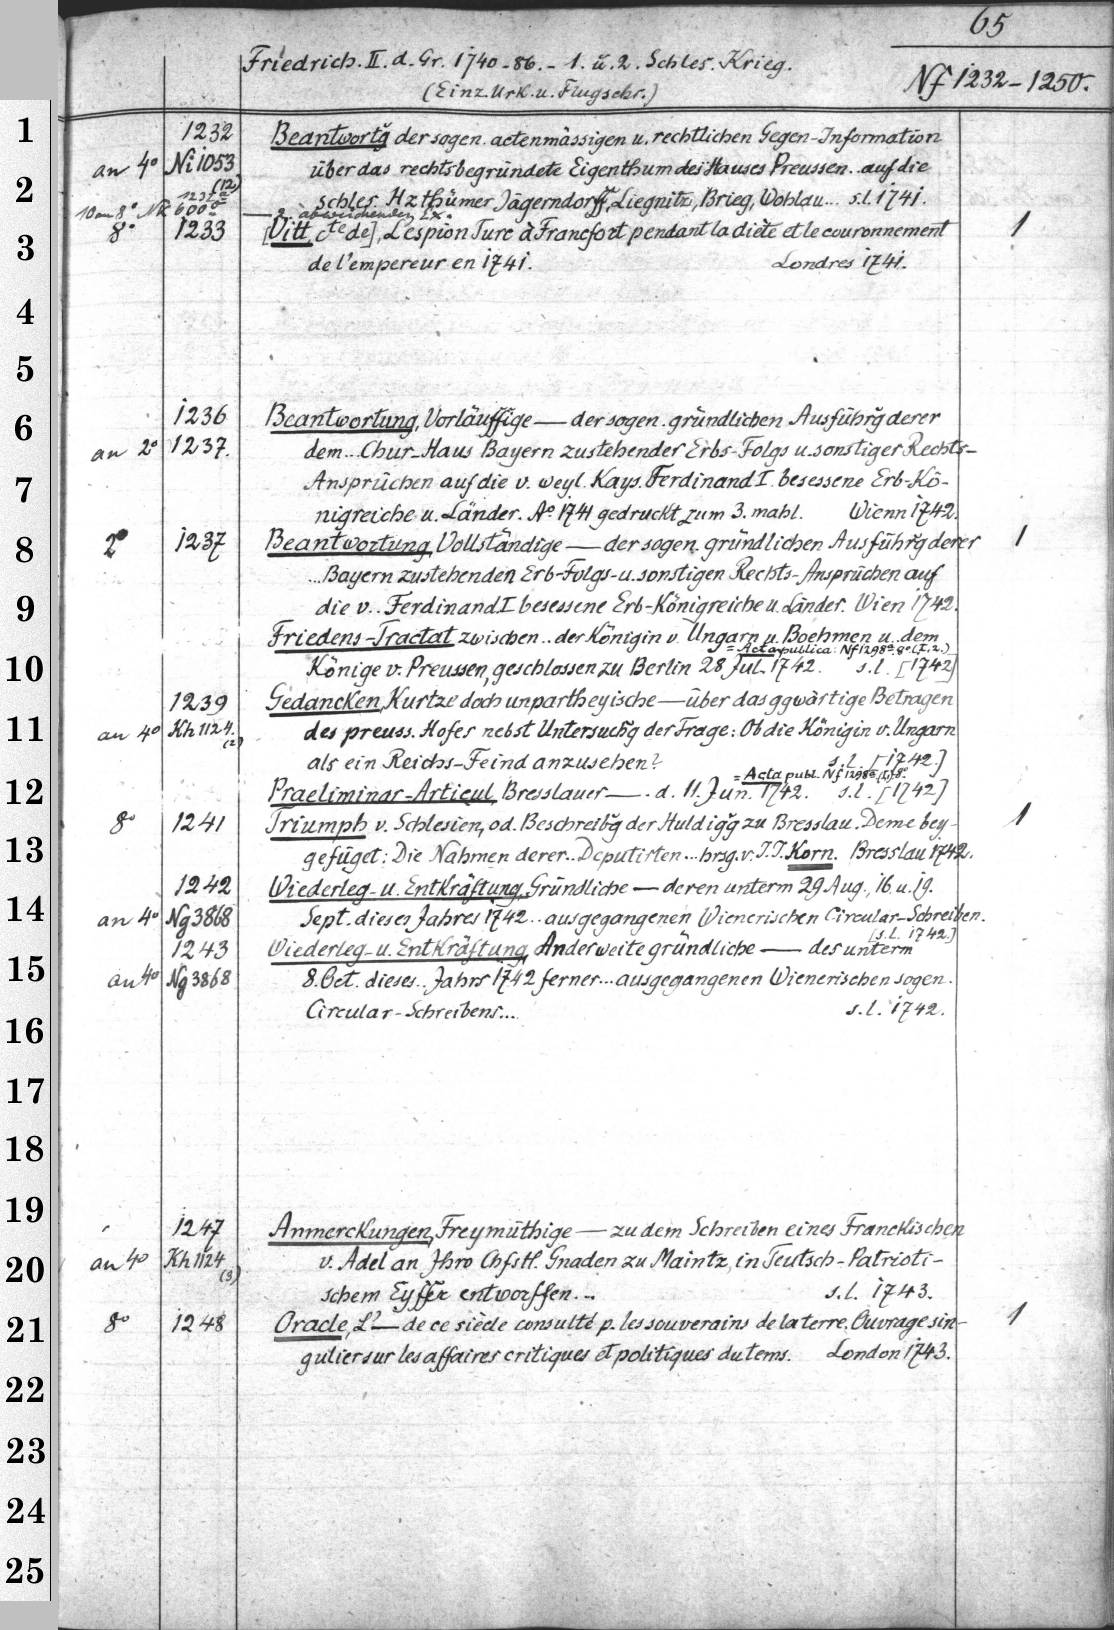 65
Friedrich. II. d. Gr. 1740-86. - 1. ü. 2. Schles. Krieg.
Nf 1232-1250.
(Einz. Urk. u. Flugschr.)
1
1232 Beantwortg̃ der sogen. actenmässigen u. rechtlichen Gegen-Information
an 4° Ni 1053 über das rechtsbegründete Eigenthum des Hauses Preussen.. auf die
(12)
2
1232a schles. Hzthümer Jägerndorff, Liegnitz, Brieg, Wohlau... s.l. 1741.
10 an 8° 6000 — 2. abweichendes Ex.
8° 1233 [Vitt, Cte de], L'espion Turc à Francfort pendant la diète et le couronnement 1
3
de l'empereur en 1741. Londres 1741.
4
5
6
1236 Beantwortung, Vorläuffige — der sogen. gründlichen Ausführg̃ derer
an 2° 1237. dem... Chur-Haus Bayern zustehender Erbs-Folgs u. sonstiger Rechts-
7
Ansprüchen auf die v. weyl. Kays. Ferdinand I. besessene Erb-Kö-
nigreiche u. Länder. A° 1741 gedruckt zum 3. mahl. Wienn 1742.
8
2° 1237 Beantwortung, Vollständige — der sogen. gründlichen Ausführg̃ derer 1
...Bayern zustehenden Erb-Folgs- u. sonstigen Rechts-Ansprüchen auf
9
die v.. Ferdinand I besessene Erb-Königreiche u. Länder. Wien 1742.
Friedens-Tractat zwischen.. der Königin v. Ungarn u. Boehmen u.. dem
= Acta publica: Nf 1298a 8° (I, 2.)
10
Könige v. Preussen, geschlossen zu Berlin 28 Jul. 1742. s.l. [1742]
1239 Gedancken, Kurtze doch unpartheyische — über das ggwärtige Betragen
11
an 4° Kh 1124. des preuss. Hofes nebst Untersuchg̃ der Frage: Ob die Königin v. Ungarn
(2)
als ein Reichs-Feind anzusehen? s.l. [1742.]
= Acta publ. Nf 1298a (I) 8°.
12
Praeliminar-Articul, Bresslauer — . d. 11. Jun. 1742. s.l. [1742]
8° 1241 Triumph v. Schlesien, od. Beschreibg̃ der Huldigg̃ zu Bresslau. Deme bey- 1
13
gefüget: Die Nahmen derer.. Deputirten... hrsg. v. J.J. Korn. Bresslau 1742.
1242 Wiederleg- u. Entkräftung, Gründliche — deren unterm 29 Aug., 16. u. 19.
14
an 4° Ng 3868 Sept. dieses Jahres 1742.. ausgegangenen Wienerischen Circular-Schreiben.
[s.l. 1742.]
1243 Wiederleg- u. Entkräftung, Anderweite gründliche — des unterm
15
an 4° Ng 3868 8. Oct. dieses.. Jahrs 1742 ferner... ausgegangenen Wienerischen sogen.
Circular-Schreibens... s.l. 1742.
16
17
18
19
1247 Anmerckungen, Freymüthige — zu dem Schreiben eines Franckischen
20
an 4° Kh 1124 v. Adel an Ihro Chfstl. Gnaden zu Maintz, in Teutsch-Patrioti-
(3)
schem Eyffer entworffen... s.l. 1743.
21
8° 1248 Oracle, L' — de ce siècle consulté p. les souverains de la terre. Ouvrage sin- 1
gulier sur les affaires critiques et politiques du tems. London 1743.
22
23
24
25